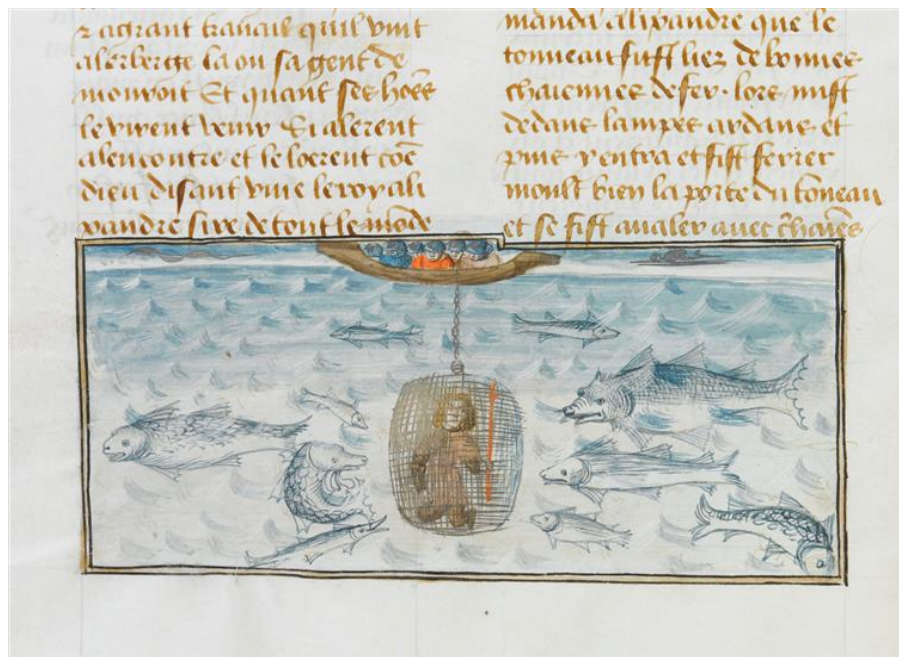 z a grant trauail quil vint
alerberge la ou sa gent de
mouroit Et quant ses hoes
le virent venir Si alerent
alencontre et le loerent coe
dieu disant viue le roy ali
xandre sire de tout le mode
manda alixandre que le
tonneau fust liez de bonnes
chaiennes de fer. lors mist
dedans lampes ardans et
puis y entra et fist fermer
moult bien la porte du toneau
et se fist aualer auec chaies